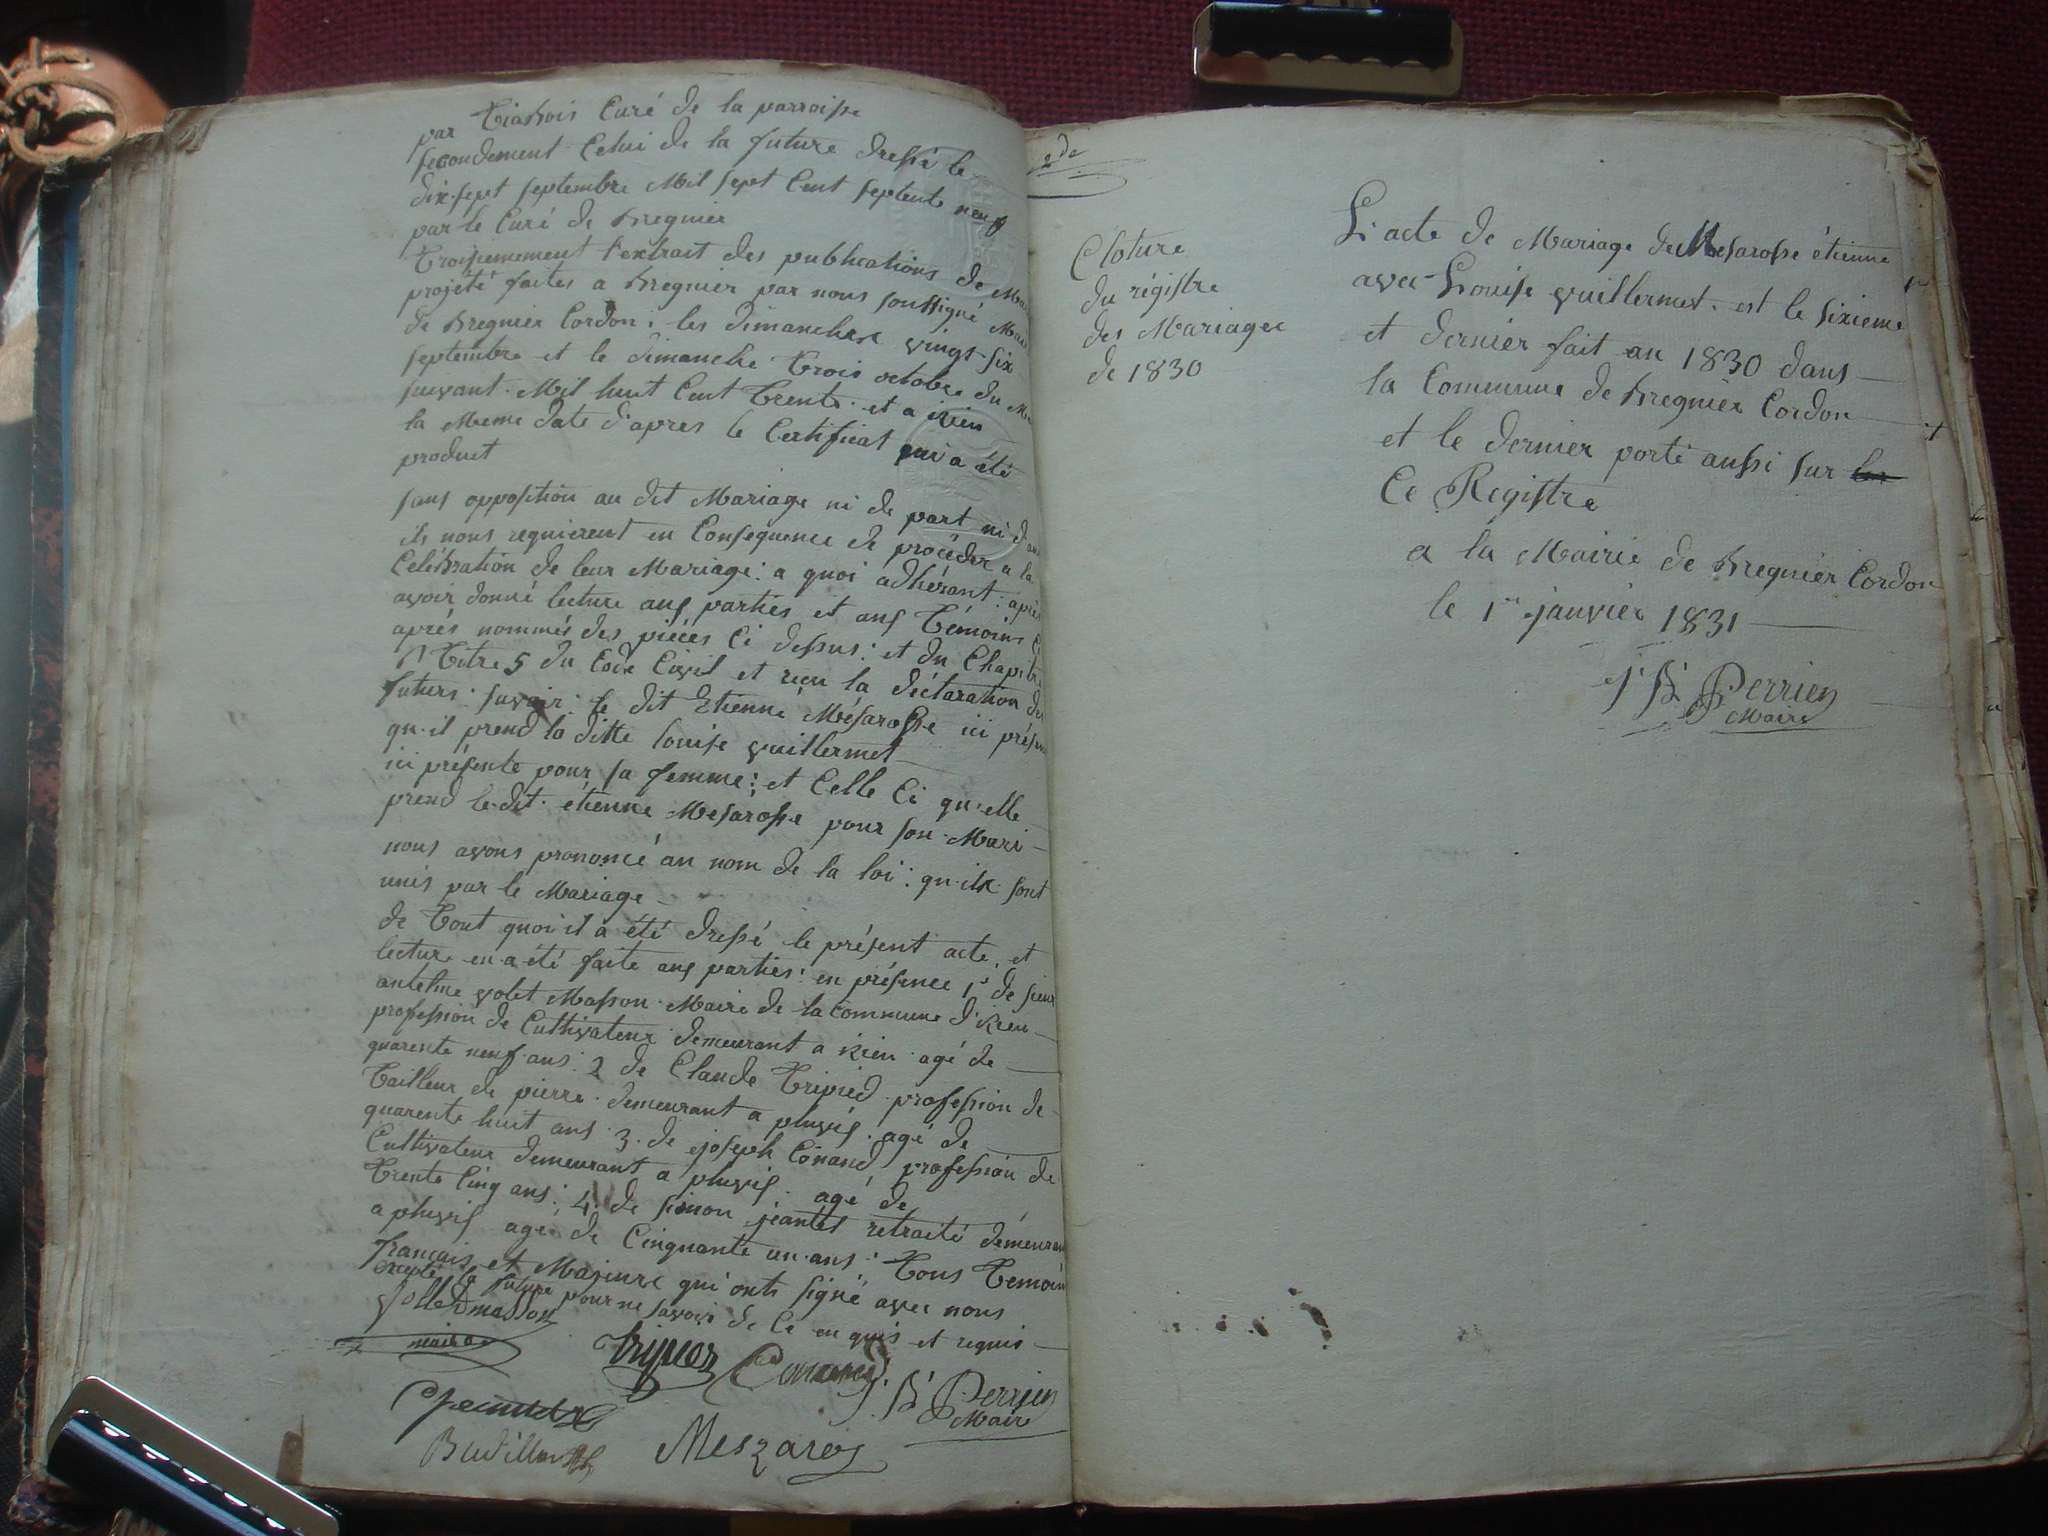 par Curé de la parroisse
secondement Celui de la future dressé le
dix-sept septembre Mil sept Cent septente neuf
par le Curé de Bregnier
troisiemement l'extrait des publications de
projété faites a Bregnier par nous soussigné
de Bregnier Cordon : les dimanches vingt-six
septembre et le dimanche trois octobre du
suivant Mil huit Cent trente et a
la Meme date d'apres le Certificat qui a été
produit
sans opposition au dit Mariage ni de part ni
ils nous requierent en Consequence de procéder a la
Celébration de leur Mariage : a quoi adhérant : après
avoir donné lecture aux parties et aux témoins
après nommés des pièces Ci dessus : et du Chapitre
titre 5 du Code Civil et reçu la déclaration des
futurs : savoir : le dit Etienne Mésarosse ici
qu'il prend la ditte louise vuillermet
ici présente pour sa femme ; et Celle Ci qu'elle
prend le dit étienne Mesarosse pour son Mari
nous avons prononcé au nom de la loi : qu'ils sont
unis par le Mariage
de tout quoi il a été dressé le présent acte, et
lecture en a été faite aux parties : en présence 1° de sieur
antelme volet Masson Maire de la Commune
profession de Cultivateur demeurant a agé de
quarente neuf ans : 2 de Claude tripied profession de
tailleur de pierre demeurant a agé de
quarente huit ans 3 de joseph Conand profession de
Cultivateur demeurant a agé de
trente Cinq ans ; 4 de simon retraité
a agé de Cinquante un ans : tous
français et Majeurs qui onts signé avec nous
excepté la future pour ne savoir de Ce en quis et requis
volletmasson
maire
tripier Conand J. B. Perrier
Maire
Meszaros
2de
Cloture
du régistre
des Mariages
de 1830
L'acte de Mariage de Mesarosse étienne
avec Louise vuillermet est le sixieme
et dernier fait en 1830 dans
la Commune de Bregnier Cordon
et le dernier porté aussi sur
Ce Registre
a la Mairie de Bregnier Cordon
le 1er janvier 1831
J. B. Perrier
Maire